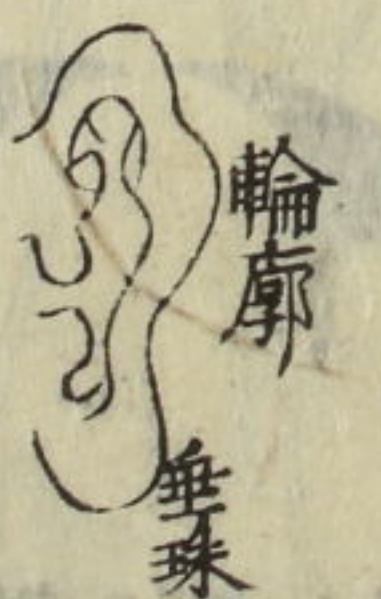 輪廓
垂珠